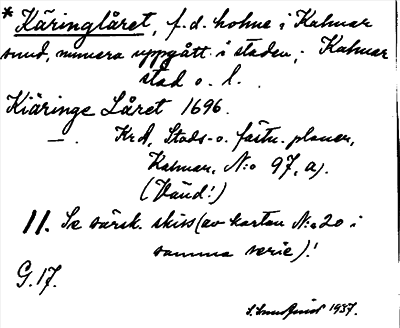 * Käringlåret, f.d. holme i Kalmar
sund, numera uppgått i staden, Kalmar
stad o. l.
Kiäringe Låret 1696.
— . KrA, Stads- o. fästn. planer,
Kalmar, N:o 97, a).
(Vänd!)
11. Se särsk. skiss (av kartan N:o 20 i
samma serie)!
G. 17.
1937.